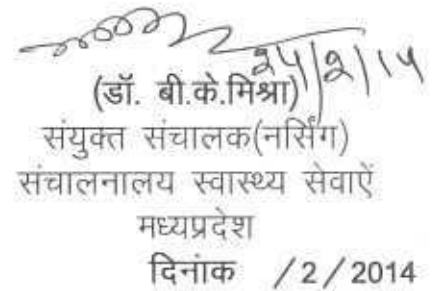 24/2/14
(डॉ. बी.के.मिश्रा)
संयुक्त संचालक(नर्सिंग)
संचालनालय स्वास्थ्य सेवाऐं
मध्यप्रदेश
दिनांक /2/2014